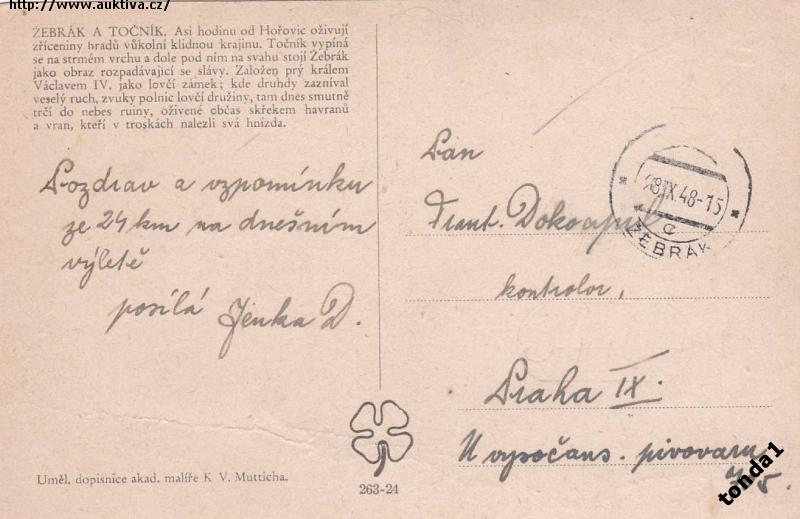 http://www.auktiva.cz/
ŽEBRÁK A TOČNÍK. Asi hodinu od Hořovic oživují
zříceniny hradů vůkolní klidnou krajinu. Točník vypíná
se na strmém vrchu a dole pod ním na svahu stojí Žebrák
jako obraz rozpadávající se slávy. Založen prý králem
Václavem IV. jako lovčí zámek; kde druhdy zazníval
veselý ruch, zvuky polnic lovčí družiny, tam dnes smutně
trčí do nebes ruiny, oživené občas skřekem havranů
a vran, kteří v troskách nalezli svá hnízda.
Pozdrav a vzpomínku
ze 24 km na dnešním
výletě
posílá Jenka D.
Uměl. dopisnice akad. malíře K V. Mutticha.
263-24
28.IX.48-15
ŽEBRÁK
Pan
Frant.
kontrolor,
Praha IX.
U vysočans. pivovaru
tonda1